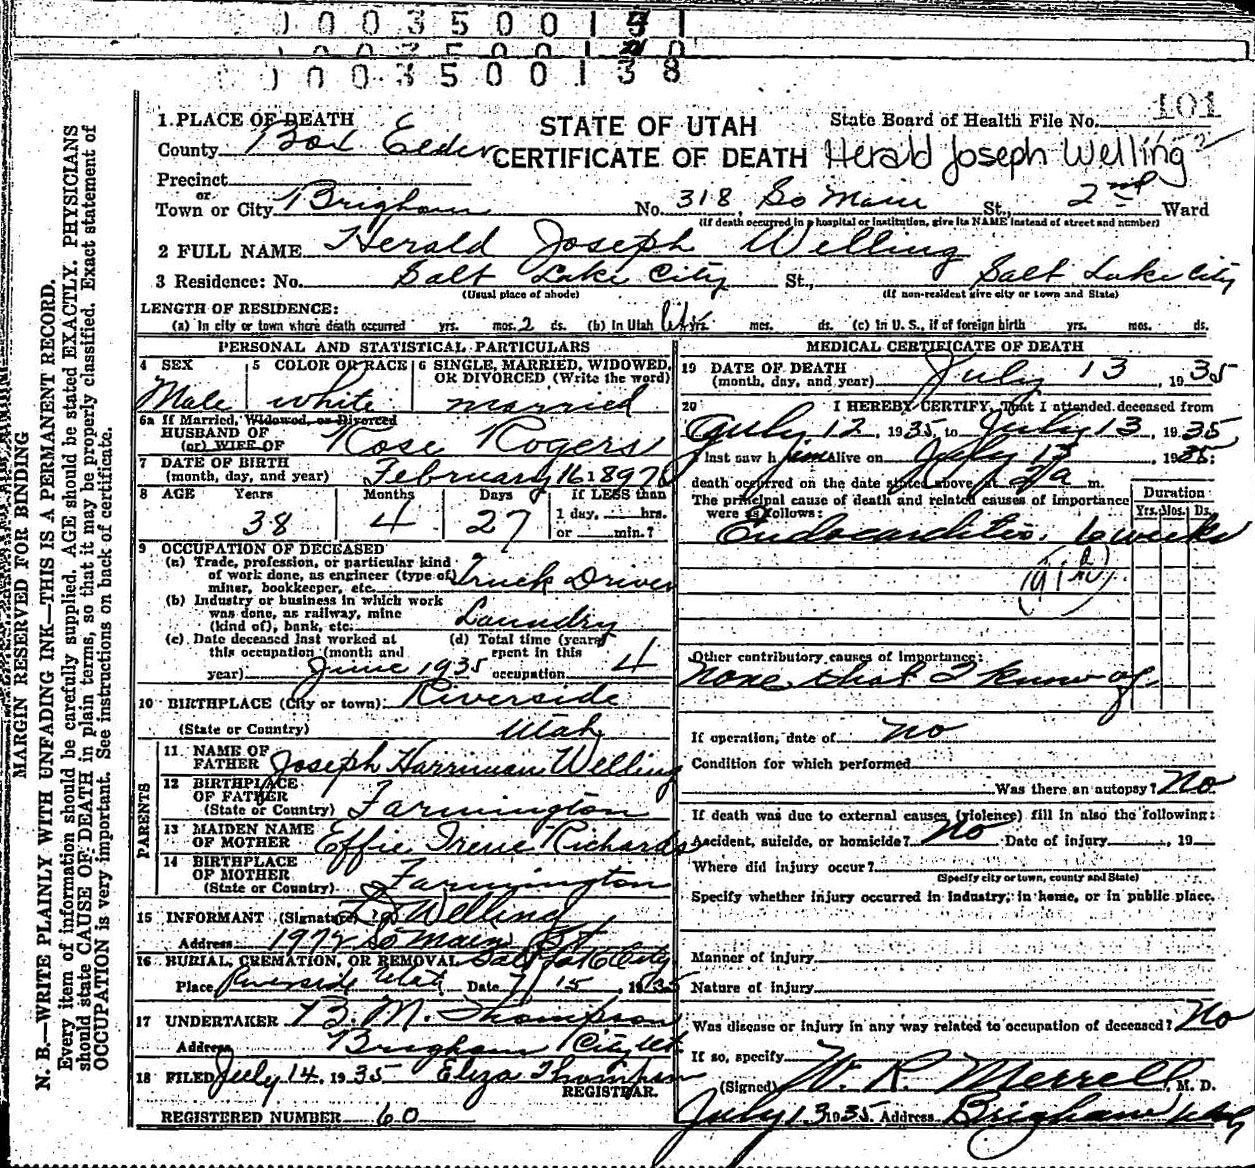 0 0 0 3 5 0 0 1 1
0 0 3 5 0 0
0 0 0 3 5 0 0 1 3 8
101
1. PLACE OF DEATH
County Box Elder
STATE OF UTAH
CERTIFICATE OF DEATH
State Board of Health File No.
Herald Joseph Welling
Precinct
or
Town or City Brigham No. 318, So Main St., 2nd Ward
(If death occurred in a hospital or institution, give its NAME instead of street and number)
2 FULL NAME Herald Joseph Welling
3 Residence: No. Salt Lake City St., Salt Lake City
(Usual place of abode) (If non-resident give city or town and State)
LENGTH OF RESIDENCE:
(a) In city or town where death occurred yrs. mos. 2 ds. (b) In Utah life yrs. mos. ds. (c) In U. S., if of foreign birth yrs. mos. ds.
PERSONAL AND STATISTICAL PARTICULARS
4 SEX
Male
5 COLOR OR RACE
white
6 SINGLE, MARRIED, WIDOWED, OR DIVORCED (Write the word)
married
6a If Married, Widowed, or Divorced
HUSBAND OF
(or) WIFE OF Rose Rogers
7 DATE OF BIRTH
(month, day, and year) February 16 1897
8 AGE Years Months Days If LESS than
38 4 27 1 day, hrs.
or min.?
9 OCCUPATION OF DECEASED
(a) Trade, profession, or particular kind
of work done, as engineer (type of)
miner, bookkeeper, etc. Truck Driver
(b) Industry or business in which work
was done, as railway, mine
(kind of), bank, etc. Laundry
(c) Date deceased last worked at
this occupation (month and
year) June 1935
(d) Total time (years)
spent in this
occupation 4
10 BIRTHPLACE (City or town) Riverside
(State or Country) Utah
PARENTS
11 NAME OF
FATHER Joseph Harriman Welling
12 BIRTHPLACE
OF FATHER
(State or Country) Farmington
13 MAIDEN NAME
OF MOTHER Effie Irene Richards
14 BIRTHPLACE
OF MOTHER
(State or Country) Farmington
15 INFORMANT (Signature) Welling
Address 1972 So Main St
16 BURIAL, CREMATION, OR REMOVAL Salt Lake City
Place Riverside Utah Date 7/15, 1935
17 UNDERTAKER B. M. Thompson
Address Brigham City Ut.
18 FILED July 14. 1935 Eliza Thompson
REGISTRAR.
REGISTERED NUMBER 60
MEDICAL CERTIFICATE OF DEATH
19 DATE OF DEATH
(month, day, and year) July 13, 1935
20 I HEREBY CERTIFY, That I attended deceased from
July 12, 1935, to July 13, 1935
I last saw him alive on July 13, 1935;
death occurred on the date stated above, at 2/a m.
The principal cause of death and related causes of importance
were as follows:
Duration
Yrs. Mos. Ds.
Endocarditis. 6 weeks
Other contributory causes of importance:
None that I know of
If operation, date of no
Condition for which performed
Was there an autopsy? No
If death was due to external causes (violence) fill in also the following:
Accident, suicide, or homicide? No Date of injury, 19
Where did injury occur?
(Specify city or town, county and State)
Specify whether injury occurred in industry, in home, or in public place.
Manner of injury
Nature of injury
Was disease or injury in any way related to occupation of deceased? No
If so, specify
(Signed) W. R. Merrell, M. D.
July 13 1935 Address Brigham Utah
MARGIN RESERVED FOR BINDING
N. B.—WRITE PLAINLY WITH UNFADING INK—THIS IS A PERMANENT RECORD.
Every item of information should be carefully supplied. AGE should be stated EXACTLY. PHYSICIANS
should state CAUSE OF DEATH in plain terms, so that it may be properly classified. Exact statement of
OCCUPATION is very important. See instructions on back of certificate.